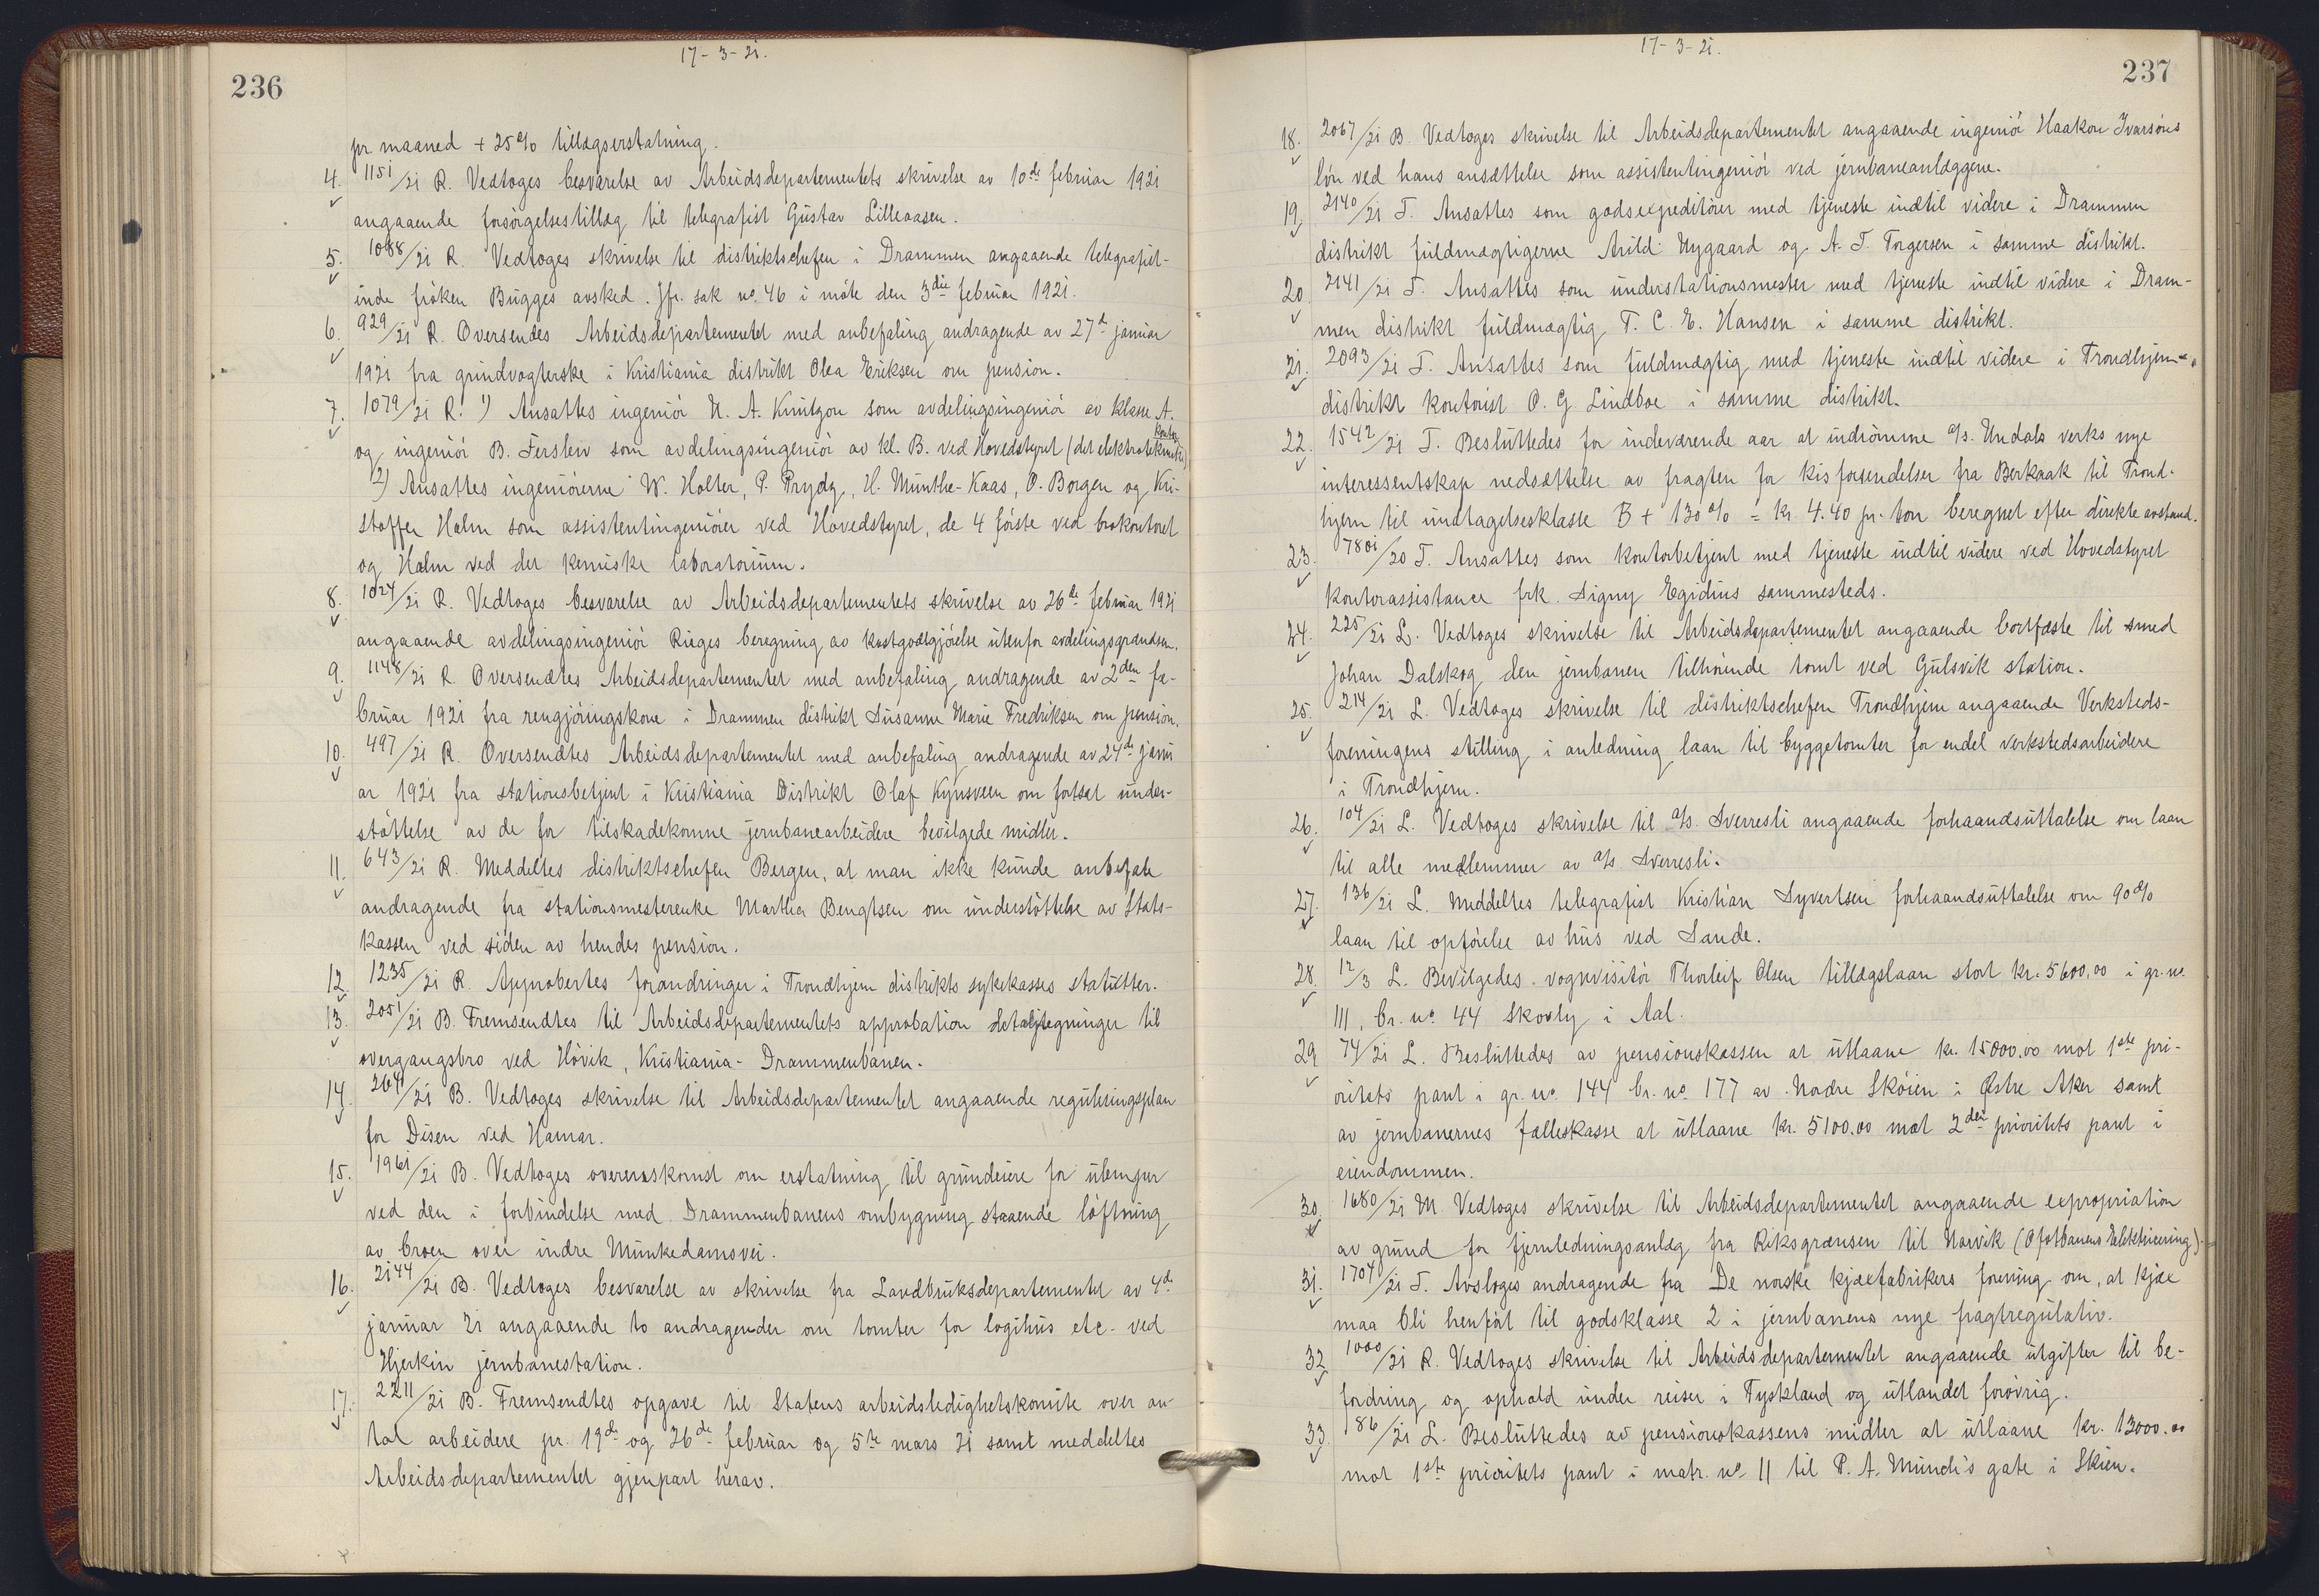 17-3-21.
236
pr. maaned + 25% tillægserstatning.
4. 1151/21 R. Vedtoges besvarelse av Arbeidsdepartementets skrivelse av 10de februar 1921
angaaende forsörgelsestillæg til telegrafist Gustav Lilleaasen.
5. 1088/21 R. Vedtoges skrivelse til distriktschefen i Drammen angaaende telegrafist-
inde fröken Bugges avsked. Jfr. sak no. 46 i möte den 3die februar 1921.
6. 929/21 R. Oversendtes Arbeidsdepartementet med anbefaling andragende av 27de januar
1921 fra grindvogterske i Kristiania distrikt Olea Eriksen om pension.
7. 1079/21 R. 1) Ansattes ingeniör N. A. Knutzon som avdelingsingeniör av klasse A.
og ingeniör B. Fersleiv som avdelingsingeniör av kl. B. ved Hovedstyret (det elektrotekniske kontor)
2) Ansattes ingeniörerne W. Holter, P. Prydz, H. Munthe-Kaas, O. Borgen og Kri-
stoffer Holm som assistentingeniörer ved Hovedstyret, de 4 förste ved brokontoret
og Holm ved det kemiske laboratorium.
8. 1024/21 R. Vedtoges besvarelse av Arbeidsdepartementets skrivelse av 26de februar 1921
angaaende avdelingsingeniör Rieges beregning av kostgodtgjörelse utenfor avdelingsgrændsen.
9. 1148/21 R. Oversendtes Arbeidsdepartementet med anbefaling andragende av 2den fe-
bruar 1921 fra rengjöringskone i Drammen distrikt Susanne Marie Fredriksen om pension.
10. 497/21 R. Oversendtes Arbeidsdepartementet med anbefaling andragende av 24de janu
ar 1921 fra stationsbetjent i Kristiania Distrikt Olaf Kynsveen om fortsat under-
stöttelse av de for tilskadekomne jernbanearbeidere bevilgede midler.
11. 643/21 R. Meddeltes distriktschefen Bergen, at man ikke kunde anbefale
andragende fra stationsmesterenke Martha Bengtsen om understöttelse av Stats-
kassen ved siden av hendes pension.
12. 1235/21 R. Approbertes forandringer i Trondhjem distrikts sykekasses statutter.
13. 2051/21 B. Fremsendtes til Arbeidsdepartementets approbation detaljtegninger til
overgangsbro ved Hövik, Kristiania-Drammenbanen.
14. 264/21 B. Vedtoges skrivelse til Arbeidsdepartementet angaaende reguleringsplan
for Disen ved Hamar.
15. 1961/21 B. Vedtoges overenskomst om erstatning til grundeiere for ulemper
ved den i forbindelse med Drammenbanens ombygning staaende löftning
av broen over indre Munkedamsvei.
16. 2144/21 B. Vedtoges besvarelse av skrivelse fra Landbruksdepartementet av 4de
januar 21 angaaende to andragender om tomter for logihus etc. ved
Hjerkin jernbanestation.
17. 2211/21 B. Fremsendtes opgave til Statens arbeidsledighetskomite over an
tal arbeidere pr. 19de og 26de februar og 5te mars 21 samt meddeltes
Arbeidsdepartementet gjenpart herav.
17-3-21.
237
18. 2067/21 B. Vedtoges skrivelse til Arbeidsdepartementet angaaende ingeniör Haakon Ivarsöns
lön ved hans ansættelse som assistentingeniör ved jernbaneanlæggene.
19. 2140/21 T. Ansattes som godsexpeditörer med tjeneste indtil videre i Drammen
distrikt fuldmægtigerne Arild Nygaard og A. T. Torgersen i samme distrikt.
20. 2141/21 T. Ansattes som understationsmester med tjeneste indtil videre i Dram-
men distrikt fuldmægtig T. C. E. Hansen i samme distrikt.
21. 2093/21 T. Ansattes som fuldmægtig med tjeneste indtil videre i Trondhjem
distrikt kontorist O. G. Lindboe i samme distrikt.
22. 1542/21 T. Besluttedes for indeværende aar at indrömme a/s. Undals verks nye
interessentskap nedsættelse av fragten for kisforsendelser fra Berkaak til Trond-
hjem til undtagelsesklasse B + 130% = kr. 4.40 pr. ton beregnet efter direkte avstand.
23. 7801/20 T. Ansattes som kontorbetjent med tjeneste indtil videre ved Hovedstyret
kontorassistance frk. Signy Egidius sammesteds.
24. 225/21 L. Vedtoges skrivelse til Arbeidsdepartementet angaaende bortfæste til smed
Johan Dalskog den jernbanen tilhörende tomt ved Gulsvik station.
25. 214/21 L. Vedtoges skrivelse til distriktschefen Trondhjem angaaende Verksteds-
foreningens stilling i anledning laan til byggetomter for endel verkstedsarbeidere
i Trondhjem.
26. 104/21 L. Vedtoges skrivelse til a/s. Sverresli angaaende forhaandsuttalelse om laan
til alle medlemmer av a/s. Sverresli.
27. 136/21 L. Meddeltes telegrafist Kristian Syvertsen forhaandsuttalelse om 90%
laan til opförelse av hus ved Sande.
28. 12/3 L. Bevilgedes vognvisitör Thorleif Olsen tillægslaan stort kr. 5600,00 i gr. no.
111, br. no. 44 Skovly i Aal.
29. 74/21 L. Besluttedes av pensionskassen at utlaane kr. 15000.00 mot 1ste pri-
oritets pant i gr. no. 144 br. no. 177 av Nordre Sköien i Östre Aker samt
av jernbanernes fælleskasse at utlaane kr. 5100.00 mot 2den prioritets pant i
eiendommen.
30. 1680/21 M. Vedtoges skrivelse til Arbeidsdepartementet angaaende expropriation
av grund for fjernledningsanlæg fra Riksgrænsen til Narvik (Ofotbanens elektricering).
31. 1704/21 T. Avsloges andragende fra De norske kjæxfabrikers forening om, at kjæx
maa bli henfört til godsklasse 2 i jernbanens nye fragtregulativ.
32. 1000/21 R. Vedtoges skrivelse til Arbeidsdepartementet angaaende utgifter til be-
fordring og ophold under reiser i Tyskland og utlandet forövrig.
33. 186/21 L. Besluttedes av pensionskassens midler at utlaane kr. 13000.00
mot 1ste prioritets pant i matr. no. 11 til P. A. Munch's gate i Skien.